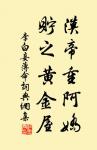 漢帝重阿嬌
貯之黃金屋
李白妾薄命詞典網集